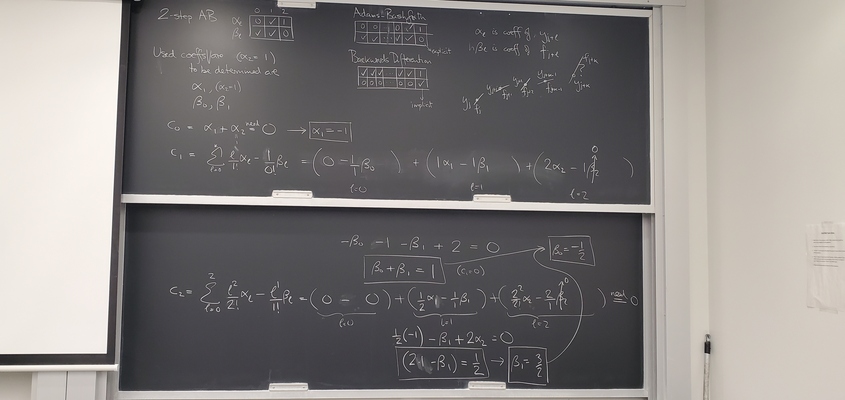 2-step AB
0 1 2
αℓ 0 ✓ 1
βℓ ✓ ✓ 0
Adams-Bashforth
0 0 0 ✓ 1
✓ ✓ ✓ ✓ 0
explicit
Backwards Differentiation
✓ ✓ ✓ ✓ ✓ 1
0 0 0
implicit
αℓ is coeff of yj+ℓ
hβℓ is coeff of fj+ℓ
yj
fj
yj+1
fj+1
yj+k
fj+k
Used coeffs are (α₂ = 1)
to be determined are
α₁, (α₂=1)
β₀, β₁
C₀ = α₁ + α₂ need = 0 → α₁ = -1
C₁ = Σ ℓ=0 ℓ¹/1! αℓ - 1/0! βℓ = (0 - 1/1 β₀) + (1α₁ - 1β₁) + (2α₂ - 1β₂ 0)
ℓ=0 ℓ=1 ℓ=2
-β₀ -1 -β₁ + 2 = 0
β₀ + β₁ = 1 (C₁=0) β₀ = -1/2
C₂ = Σ 2 ℓ=0 ℓ²/2! αℓ - ℓ¹/1! βℓ = (0 - 0) + (1/2 α₁ - 1/1 β₁) + (2²/2 α₂ - 2/1 β₂ 0) need = 0
ℓ=0 ℓ=1 ℓ=2
1/2(-1) - β₁ + 2α₂ = 0
(2·1 - β₁) = 1/2 → β₁ = 3/2